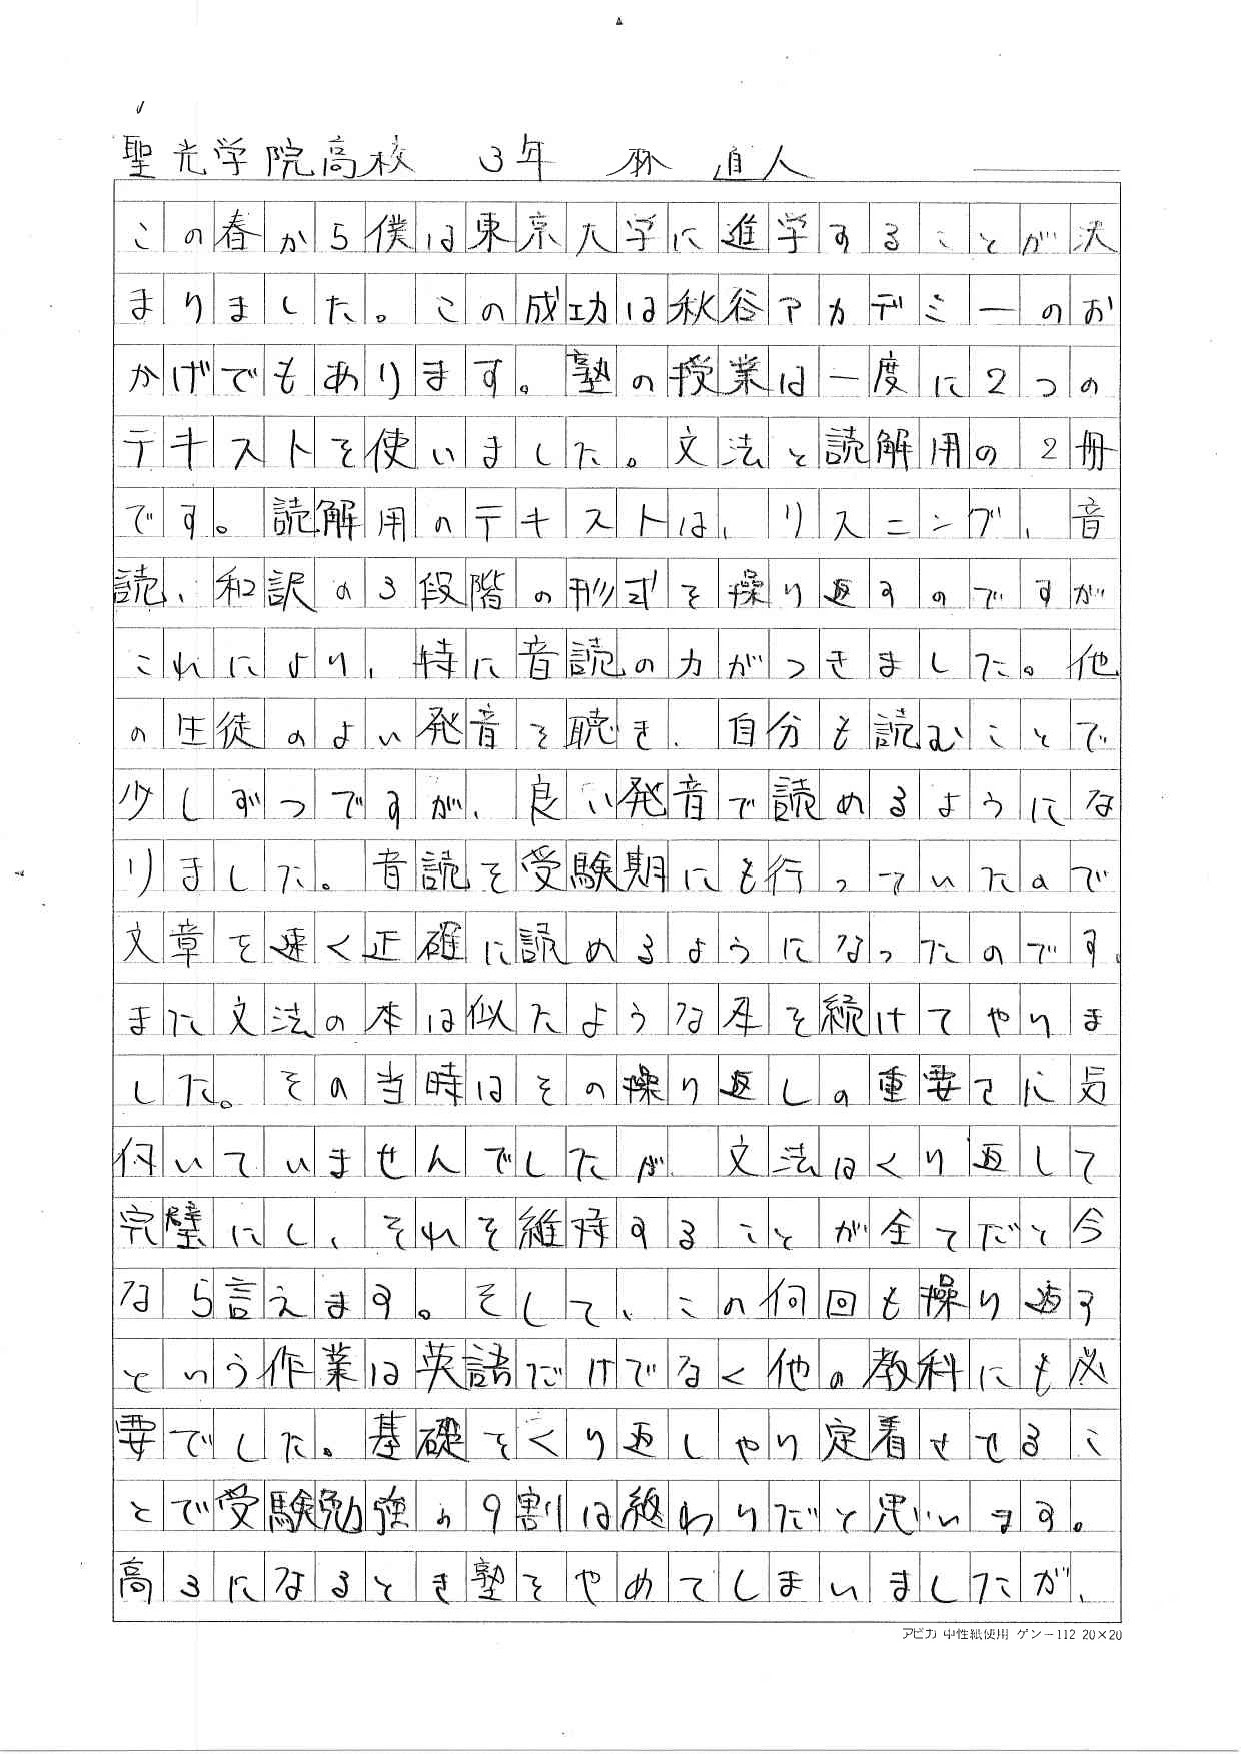 聖光学院高校 3年 林 直人
この春から僕は東京大学に進学することが決
まりました。この成功は秋谷アカデミーのお
かげでもあります。塾の授業は一度に2つの
テキストを使いました。文法と読解用の2冊
です。読解用のテキストは、リスニング、音
読、和訳の3段階の形式を操り返すのですが
これにより、特に音読の力がつきました。他
の生徒のよい発音を聴き、自分も読むことで
少しずつですが、良い発音で読めるようにな
りました。音読を受験期にも行っていたので
文章を速く正確に読めるようになったのです。
また文法の本は似たような本を続けてやりま
した。その当時はその操り返しの重要さに気
付いていませんでしたが、文法はくり返して
完璧にし、それを維持することが全てだと今
なら言えます。そして、この何回も操り返す
という作業は英語だけでなく他の教科にも必
要でした。基礎をくり返しやり定着させるこ
とで受験勉強の9割は終わりだと思います。
高3になるとき塾をやめてしまいましたが、
アピカ 中性紙使用 ゲン-112 20×20